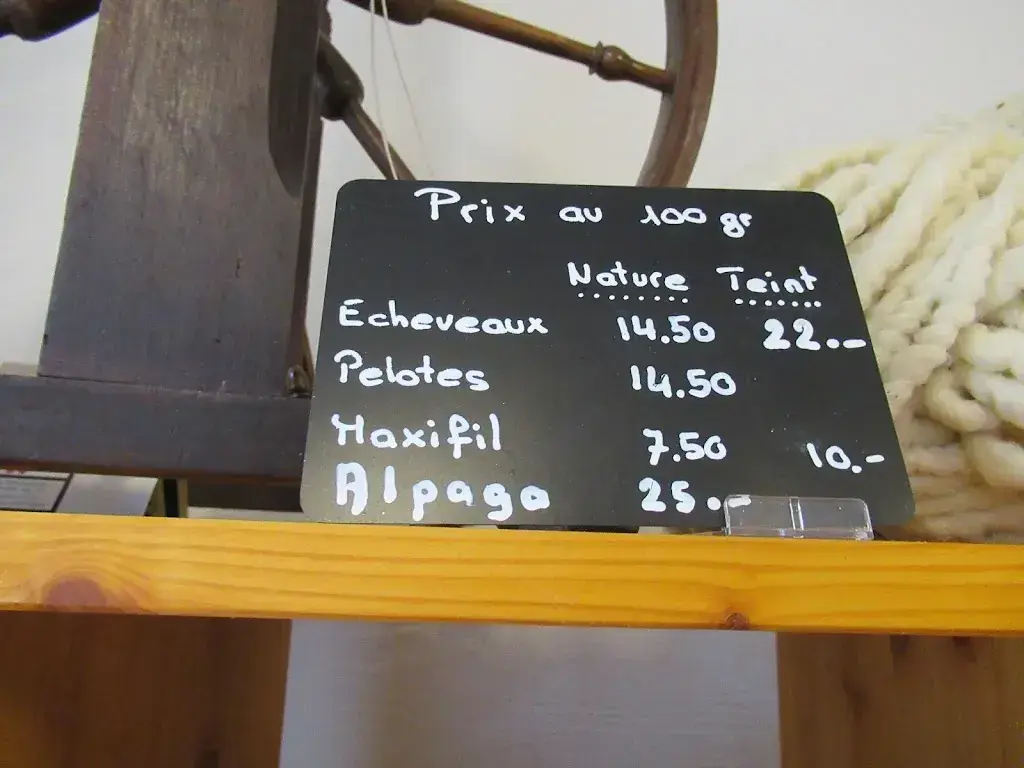 Prix au 100 gr
Nature Teint
Echeveaux 14.50 22.-
Pelotes 14.50
Maxifil 7.50 10.-
Alpaga 25.-